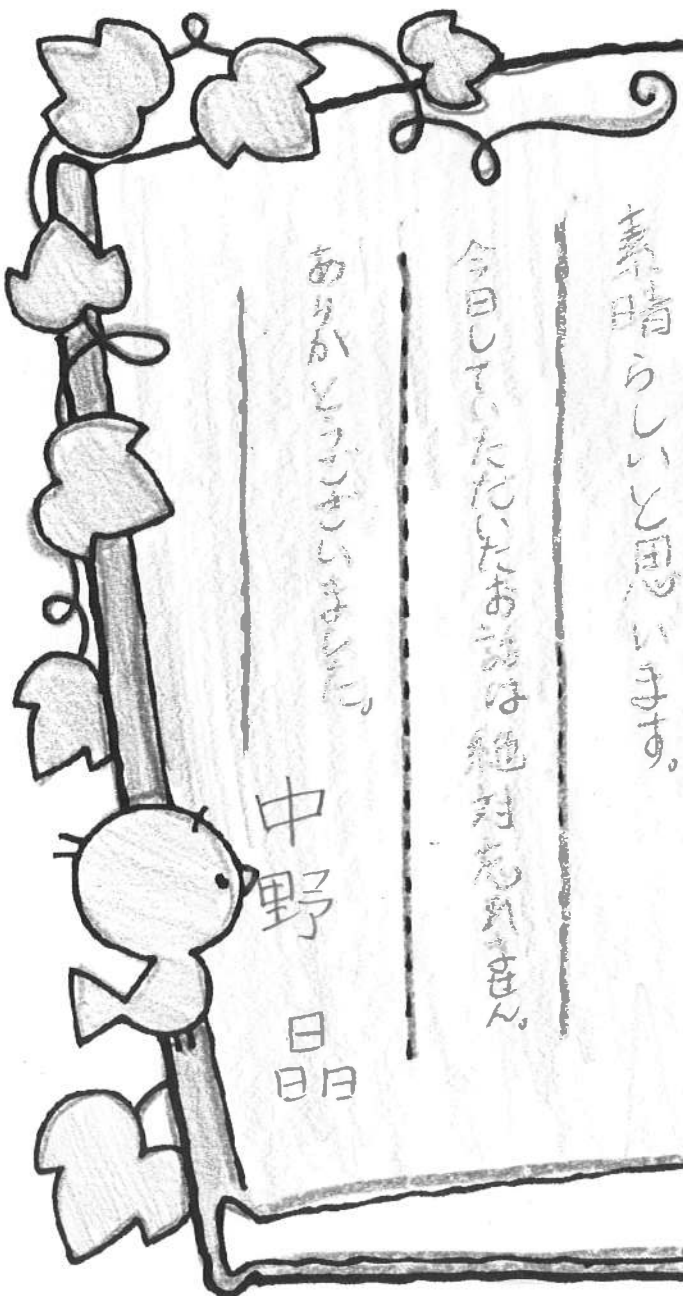 素晴らしいと思います。
今日していただいたお話は絶対忘れません。
ありがとうございました。
中野 晶